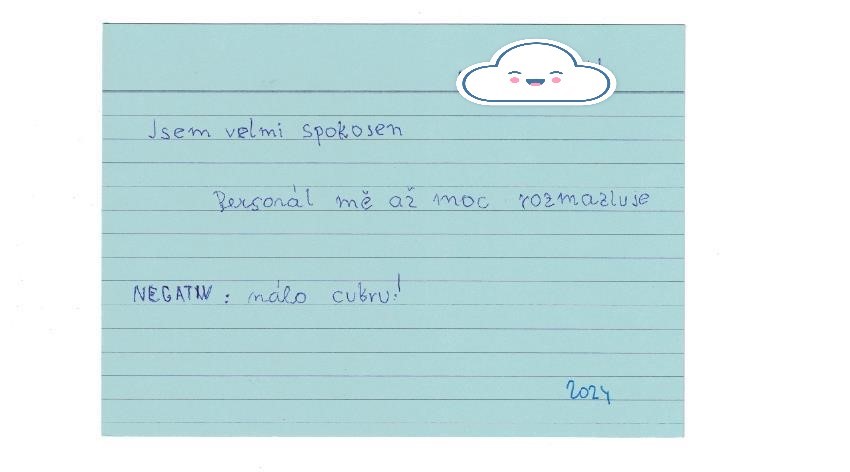 Jsem velmi spokosen
Personál mě až moc rozmazluje
NEGATIV: málo cukru!
2024